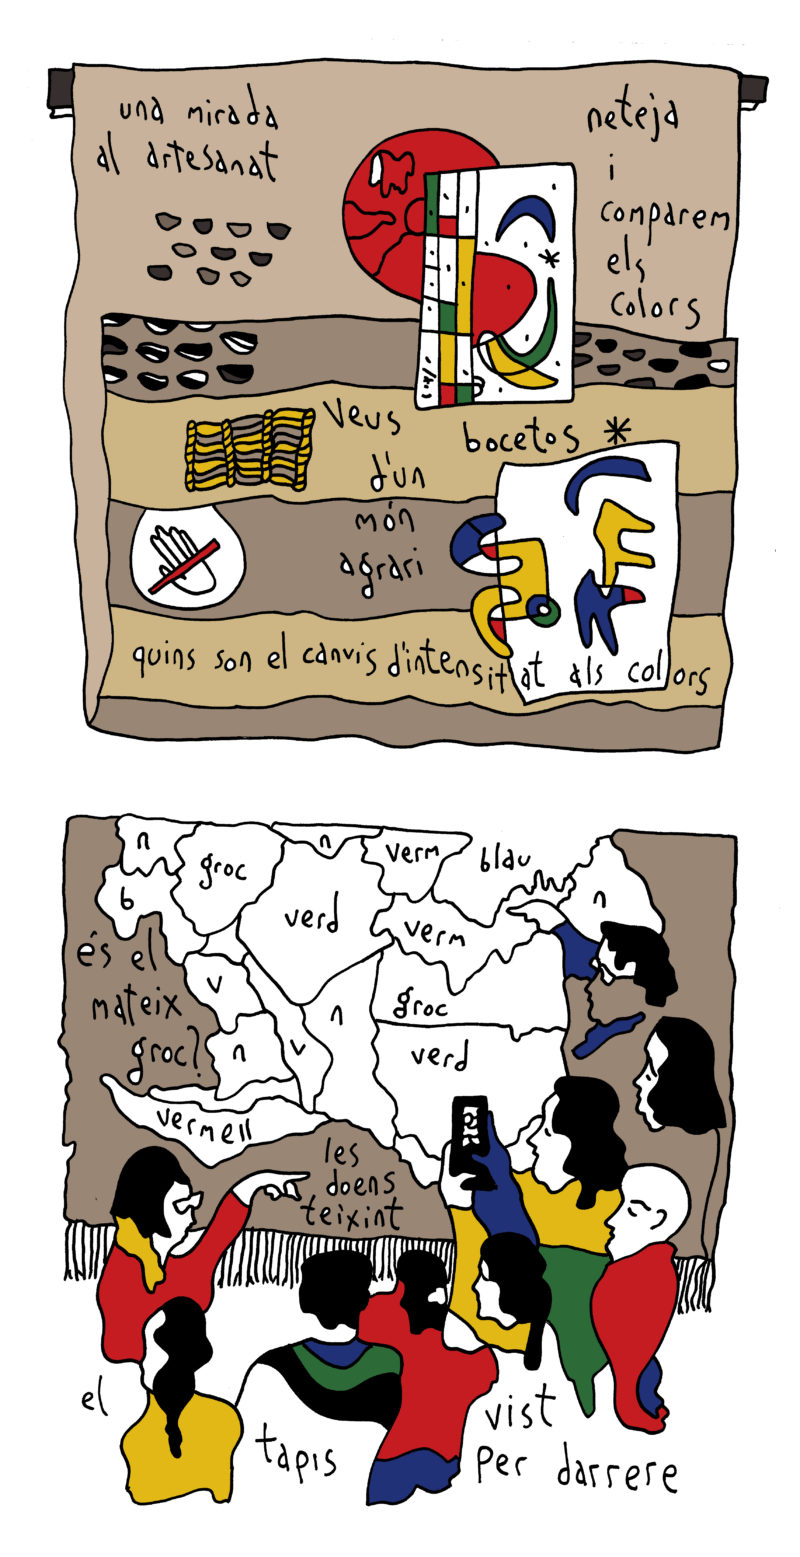 una mirada
al artesanat
neteja
i
comparem
els
colors
veus
d'un
món
agrari
bocetos *
quins son el canvis d'intensitat als colors
n
groc
n
verm
blau
n
b
verd
verm
és el
mateix
groc?
v
n
v
n
groc
verd
vermell
les
doens
teixint
el
tapis
vist
per darrere